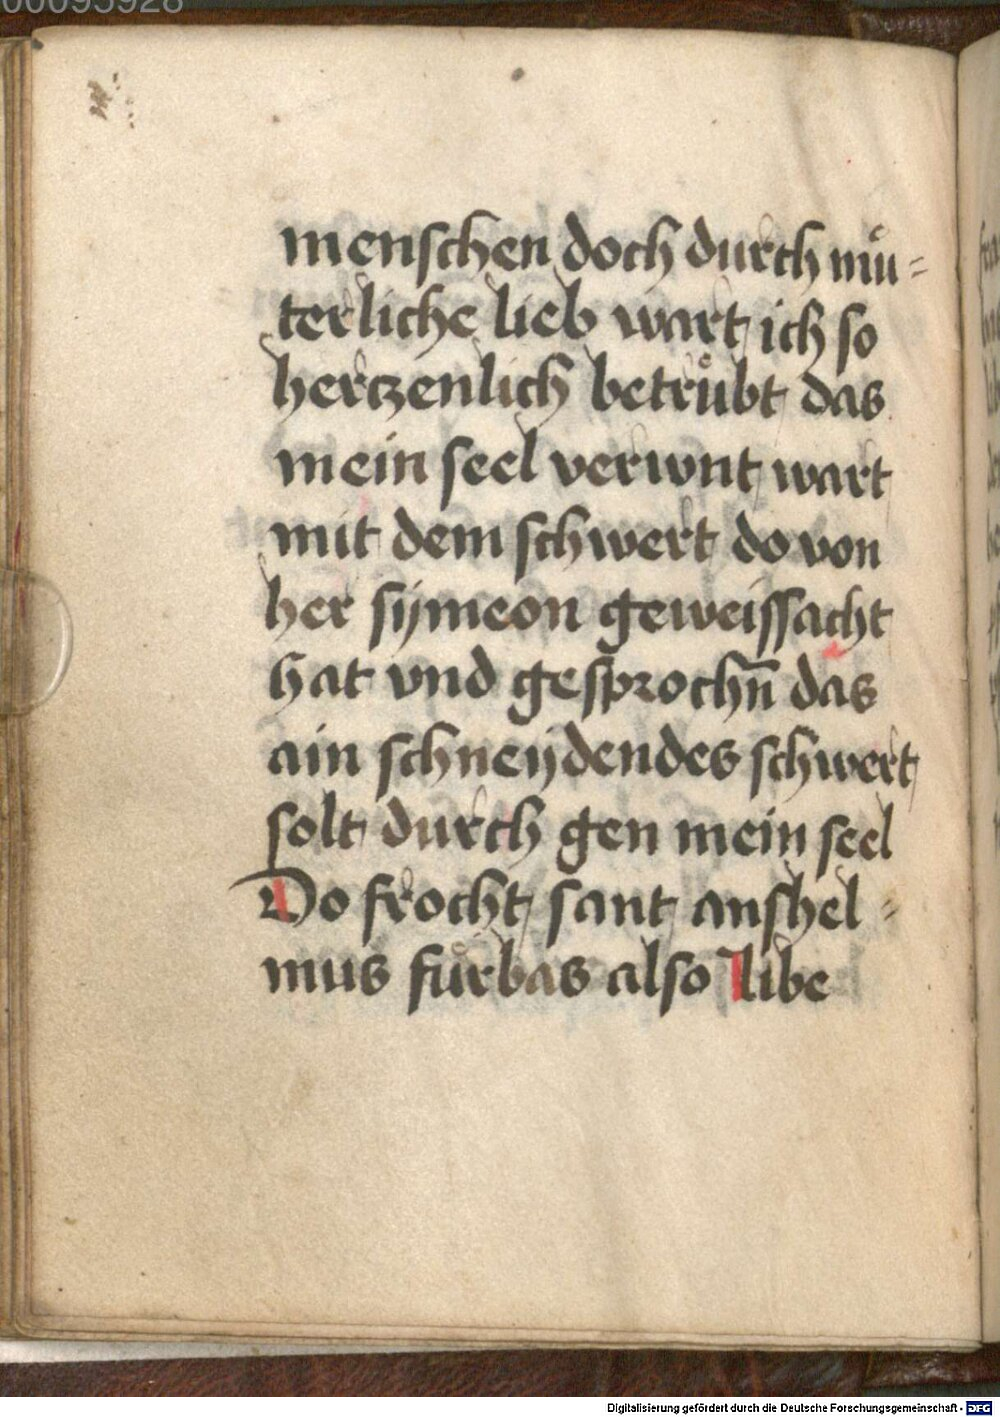 menschen doch durch muͤ=
terliche lieb wart ich so
hertzenlich betruͤbt das
mein seel verwnt wart
mit dem schwert do von
her symeon geweissacht
hat vnd gesprochn̄ das
ain schneydendes schwert
solt durch gen mein seel
Do frocht sant anshel=
mus fuͤrbas also libe
Digitalisierung gefördert durch die Deutsche Forschungsgemeinschaft - DFG